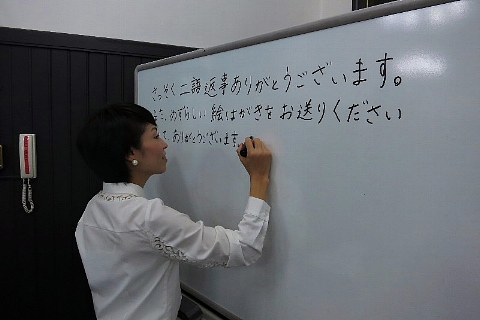 さっそく二語返事ありがとうございます。
また、めずらしい絵はがきをお送りください
て、ありがとうございます